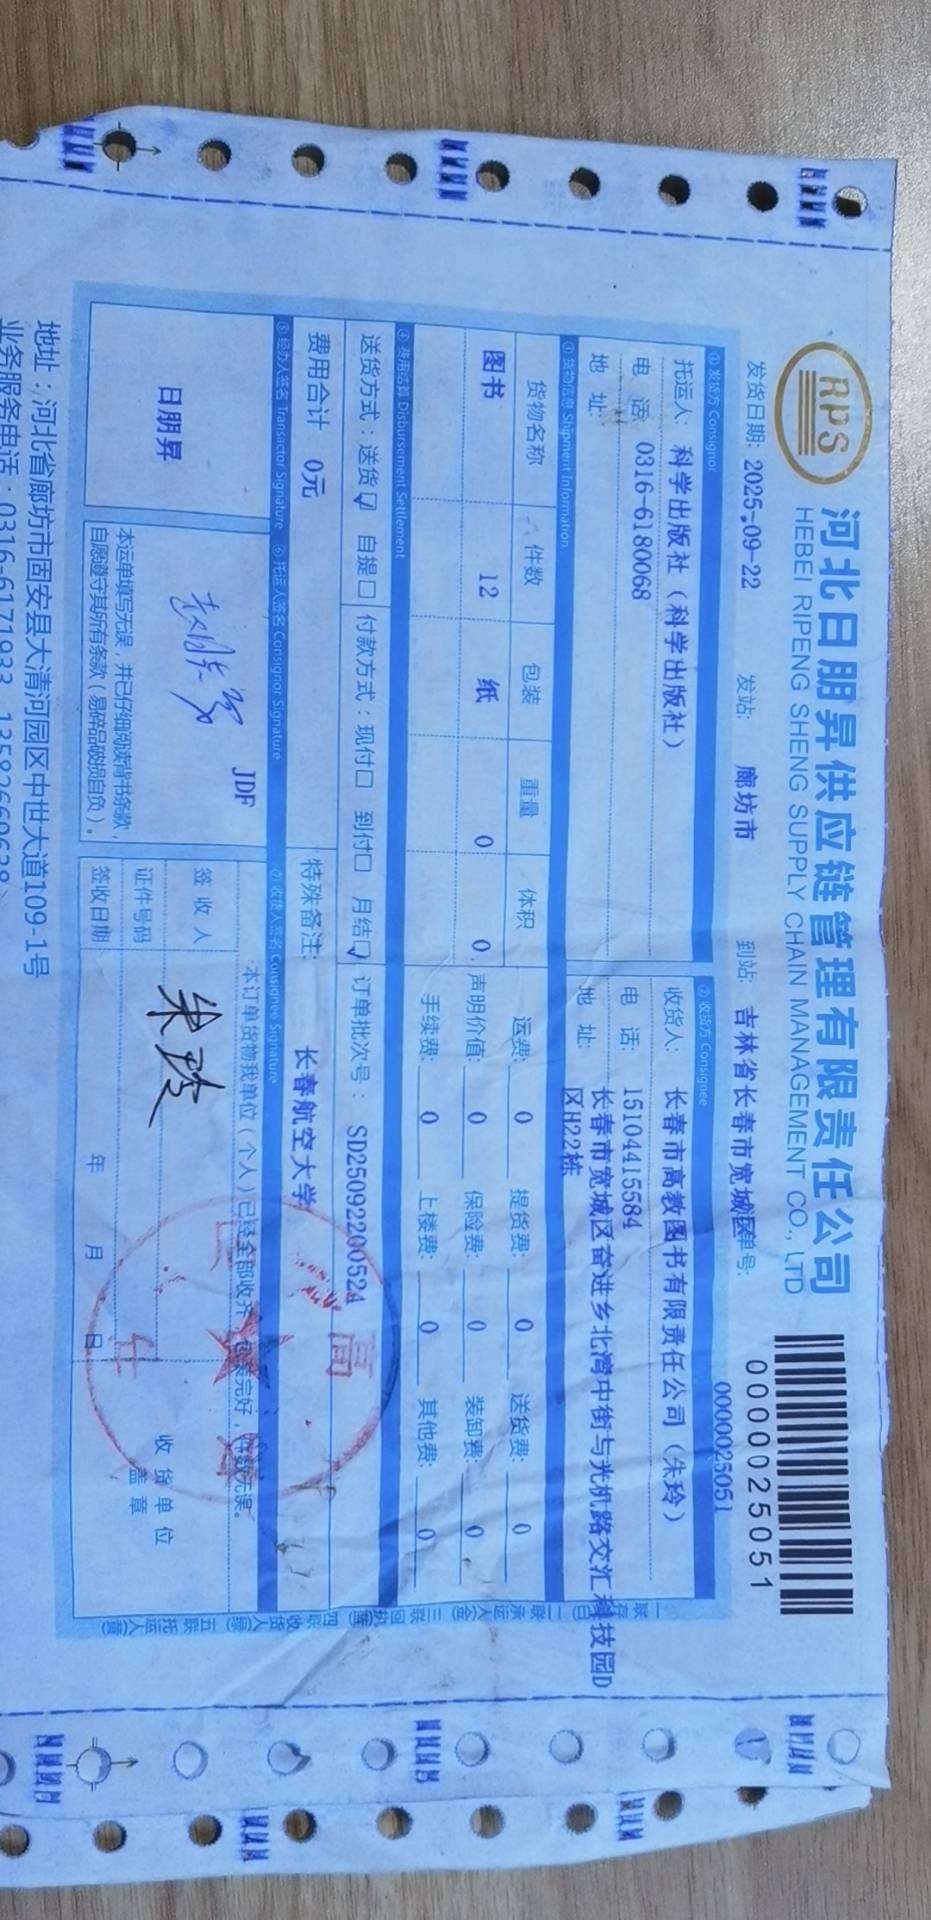 RPS
河北日朋昇供应链管理有限责任公司
HEBEI RIPENG SHENG SUPPLY CHAIN MANAGEMENT CO., LTD
0000025051
发货日期: 2025-09-22 发站: 廊坊市 到站: 吉林省长春市宽城区 单号: 0000025051
① 发货方 Consignor
托运人: 科学出版社（科学出版社）
电 话: 0316-6180068
地 址:
② 收货方 Consignee
收货人: 长春市高教图书有限责任公司（朱玲）
电 话: 15104415584
地 址: 长春市宽城区奋进乡北湾中街与光机路交汇科技园D
区H22栋
③ 货物信息 Shipment Information
货物名称 件数 包装 重量 体积
图书 12 纸 0 0
运费: 0 提货费: 0 送货费: 0
声明价值: 0 保险费: 0 装卸费: 0
手续费: 0 上楼费: 0 其他费: 0
④ 费用结算 Disbursement Settlement
送货方式：送货☑ 自提□ 付款方式：现付□ 到付□ 月结☑ 订单批次号： SD25092200524
费用合计 0元 特殊备注: 长春航空大学
⑤ 经办人签名 Transactor Signature ⑥ 托运人签名 Consignor Signature ⑦ 收货人签名 Consignee Signature
日朋昇
JDF
本运单填写无误，并已仔细阅读背书条款，
自愿遵守其所有条款（易碎品破损自负）。
本订单货物我单位（个人）已经全部收齐，包装完好，件数无误。
签 收 人 朱玲
证件号码
签收日期 年 月 日
收 货 单 位
盖 章
一联存根(白) 二联承运人(金) 三联回执(蓝) 四联收货人(绿) 五联托运人(黄)
地址：河北省廊坊市固安县大清河园区中世大道109-1号
业务服务电话：0316-6171933